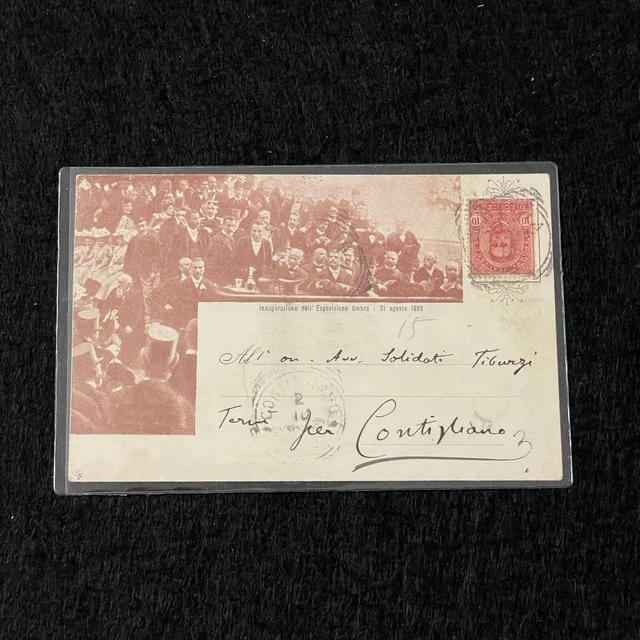 Inaugurazione dell' Esposizione Umbra - 31 agosto 1899
15
All' on. Avv. Solidati Tiburzi
Terni per Contigliano
10 10
2
10